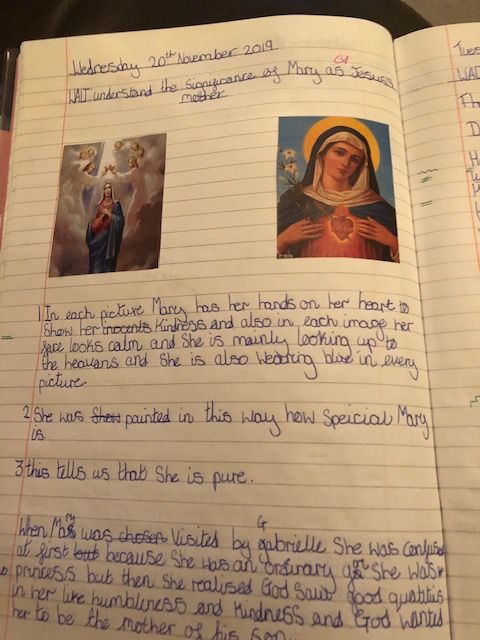 Wednesday 20th November 2019
WALT understand the significance of Mary as Jesus's
mother
1 In each picture Mary has her hands on her heart to
show her inocents kindness and also in each image her
face looks calm and she is mainly looking up to
the heavans and she is also wearing blue in every
picture.
2 She was show painted in this way how Speicial Mary
is.
3 this tells us that she is pure.
When Mary was chosen visited by Gabrielle She was confused
at first but because She was an ordinary girl She was
princess but then She realised God saw good qualitys
in her like humbliness and kindness and God wanted
her to be the mother of his son
Tues
WAL